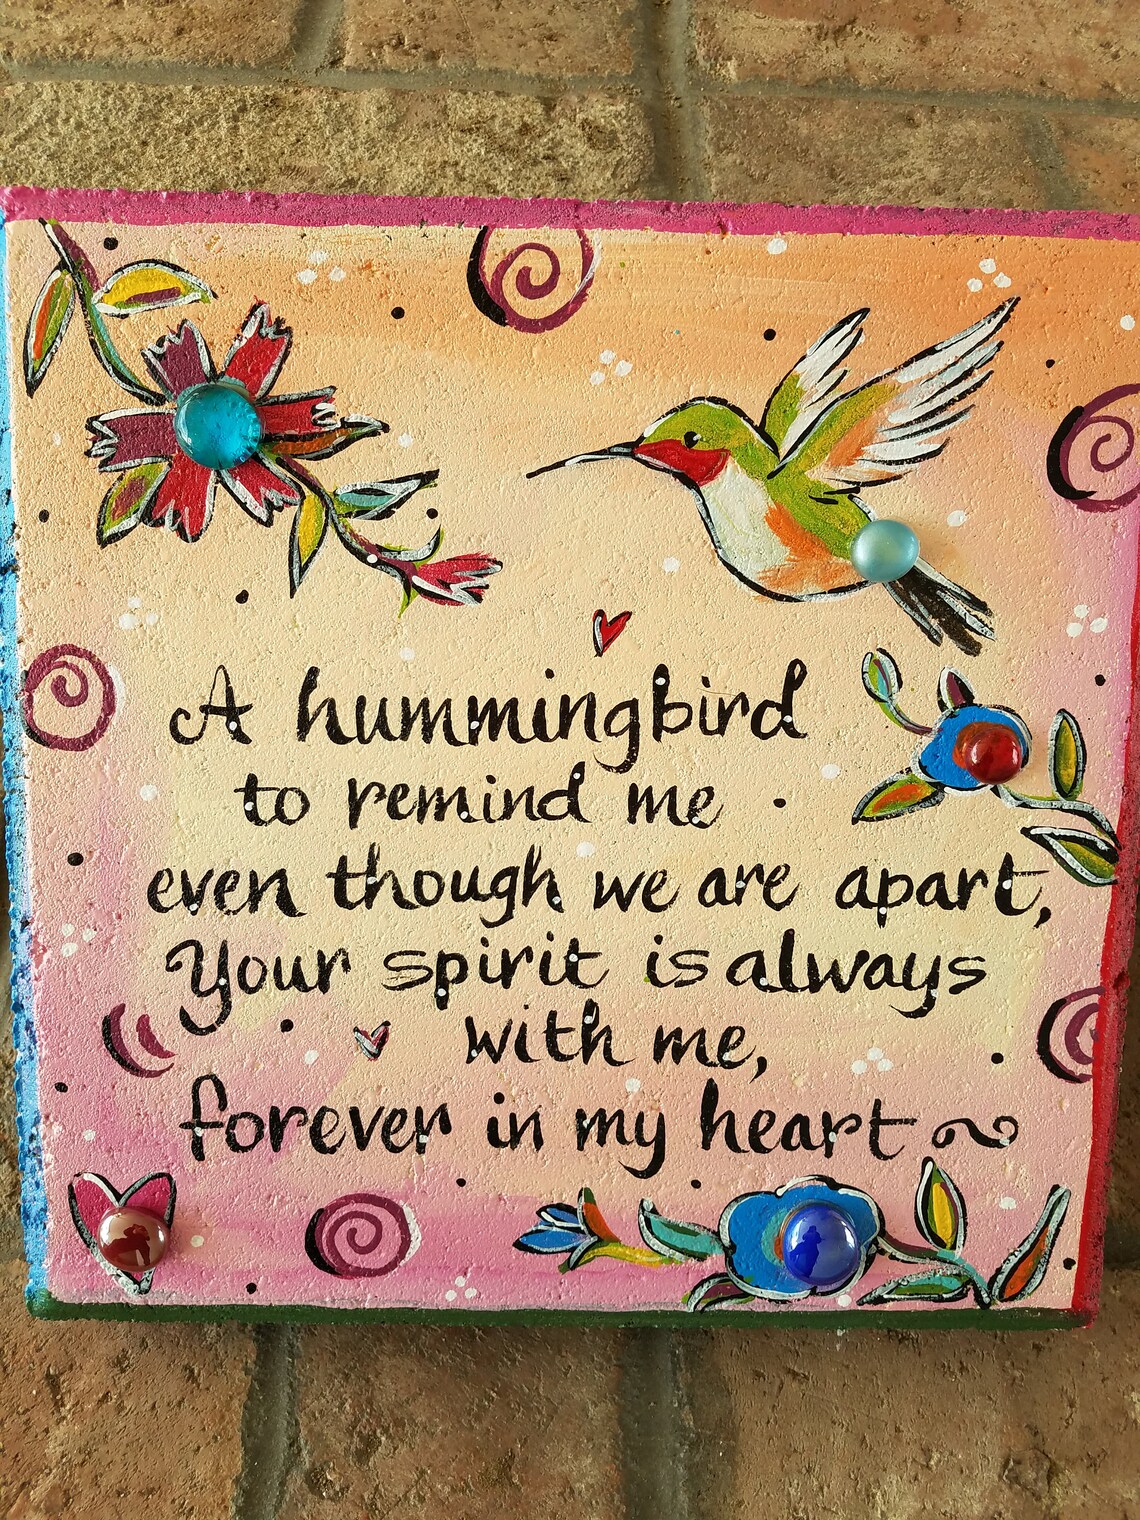 A hummingbird
to remind me
even though we are apart,
Your spirit is always
with me,
forever in my heart